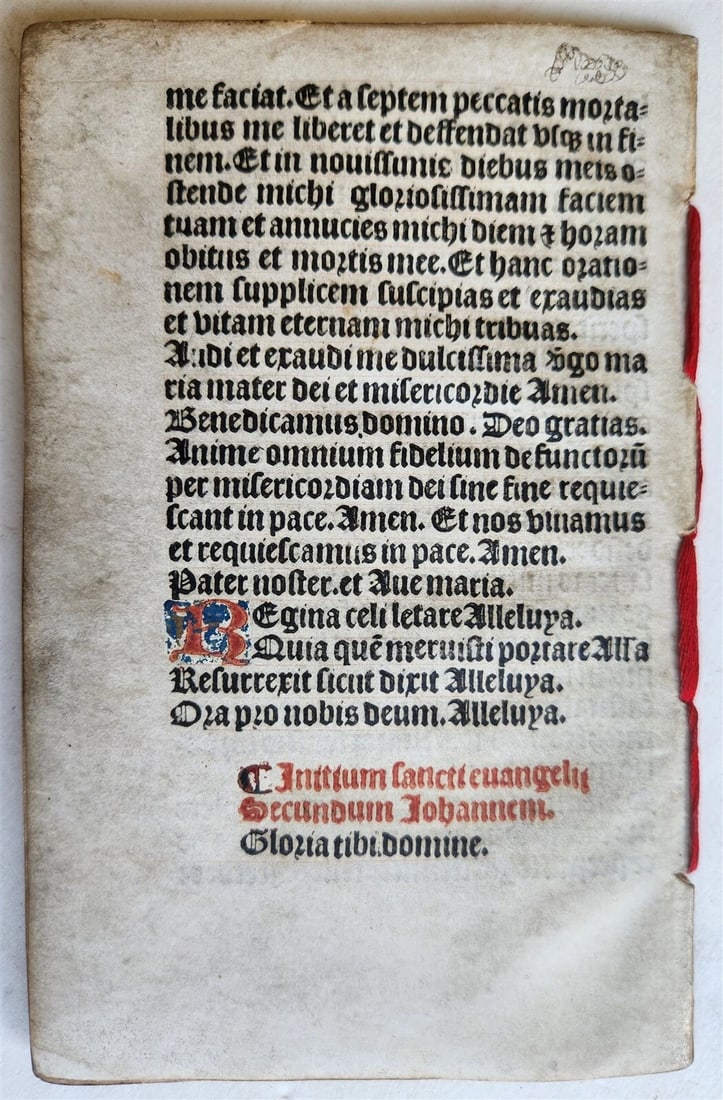 me faciat. Et a septem peccatis morta⸗
libus me liberet et deffendat vsqꝫ in fi⸗
nem. Et in nouissimis diebus meis o⸗
stende michi gloriosissimam faciem
tuam et annucies michi diem ⁊ horam
obitus et mortis mee. Et hanc oratio⸗
nem supplicem suscipias et exaudias
et vitam eternam michi tribuas.
Audi et exaudi me dulcissima v̄go ma
ria mater dei et misericordie Amen.
Benedicamus domino. Deo gratias.
Anime omnium fidelium defunctorū
per misericordiam dei sine fine requie⸗
scant in pace. Amen. Et nos viuamus
et requiescamus in pace. Amen.
Pater noster. et Aue maria.
REgina celi letare Alleluya.
Quia quē meruisti portare Alla
Resurrexit sicut dixit Alleluya.
Ora pro nobis deum. Alleluya.
¶ Initium sancti euangelii
Secundum Iohannem.
Gloria tibi domine.